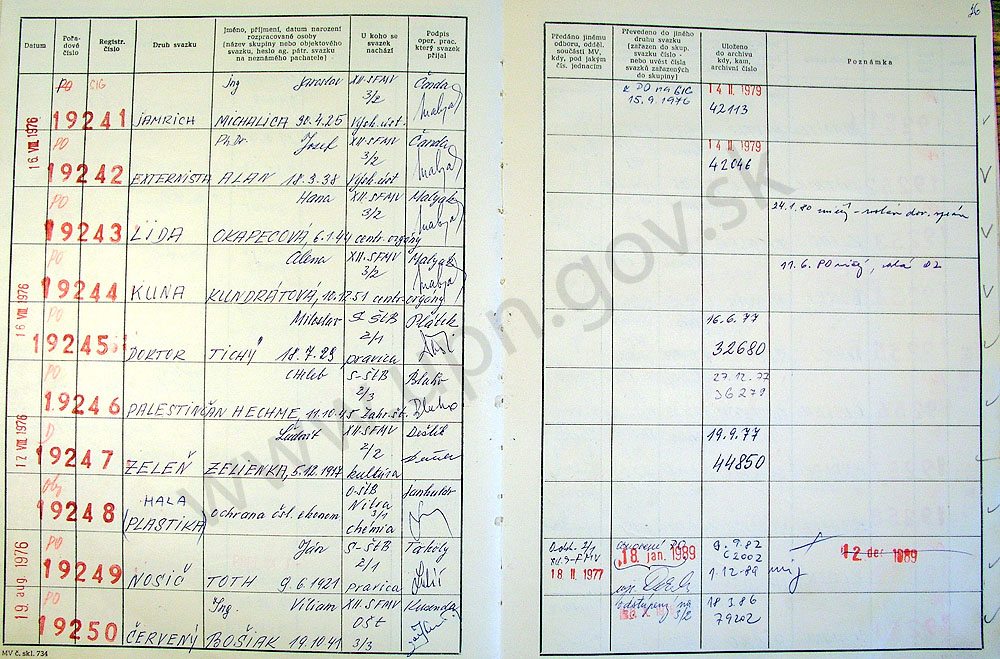 76
Datum
Pořadové číslo
Registr. číslo
Druh svazku
Jméno, příjmení, datum narození
rozpracované osoby
(název skupiny nebo objektového
svazku, heslo ag. pátr. svazku
na neznámého pachatele)
U koho se
svazek
nachází
Podpis
oper. prac.
který svazek
přijal
Předáno jinému
odboru, odděl.
součásti MV,
kdy, pod jakým
čís. jednacím
Převedeno do jiného
druhu svazku
(zařazen do skup.
svazku číslo -
nebo uvést čísla
svazků zařazených
do skupiny)
Uloženo
do archivu
kdy, kam,
archivní číslo
Poznámka
16 VIII 1976
PO
19241
JAMRICH
Ing Jaroslav
MICHALICA 30.4.25
XII-SFMV
3/2
Čanda
z PO na
15.9.1976
14 II 1979
42113
PO
19242
EXTERNISTA
PhDr. Josef
ALAN 18.3.38
XII-SFMV
3/2
Čanda
14 II 1979
42046
PO
19243
LIDA
Hana
OKAPECOVÁ, 6.1.44
XII-SFMV
3/2
centr. orgány
Matyak
24.1.80
PO
19244
KUNA
Alena
KUNDRÁTOVÁ, 10.12.51
XII-SFMV
3/2
centr. orgány
Matyak
11.6. PO
16 VIII 1976
PO
19245
DOKTOR
Miloslav
TICHÝ 18.7.23
S-ŠtB
2/1
pravica
16.6.77
32680
PO
19246
PALESTINČAN
HECHME, 11.10.45
S-ŠtB
2/3
27.12.77
36279
17 VIII 1976
19247
ZELEŇ
Ľudovít
ZELIENKA, 5.12.1917
XII-SFMV
2/2
kultúra
19.9.77
44850
19248
HALA
(PLASTIKA)
ochrana čsl. ekonom
O-ŠtB
Nitra
3/1
chémia
19 aug. 1976
PO
19249
NOSIČ
Ján
TOTH 9.6.1921
S-ŠtB
2/1
pravica
Odd. 2/1
18 II 1977
18 jan. 1989
1.12.89
12 dec 1989
PO
19250
ČERVENÝ
Ing Viliam
BOŠIAK 19.10.41
XII-SFMV
3/3
3/2
18 3.86
79202
MV č. skl. 734
www.upn.gov.sk